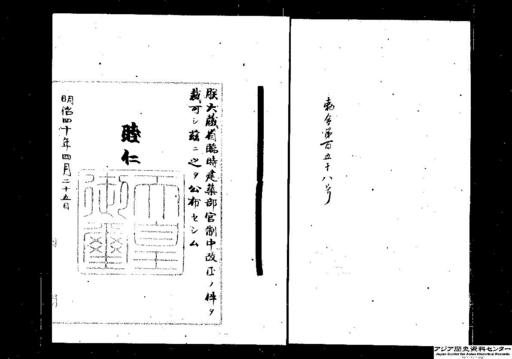 勅令第百五十八号
朕大蔵省臨時建築部官制中改正ノ件ヲ
裁可シ茲ニ之ヲ公布セシム
睦仁
天皇御璽
明治四十年四月二十五日
アジア歴史資料センター
Japan Center for Asian Historical Records